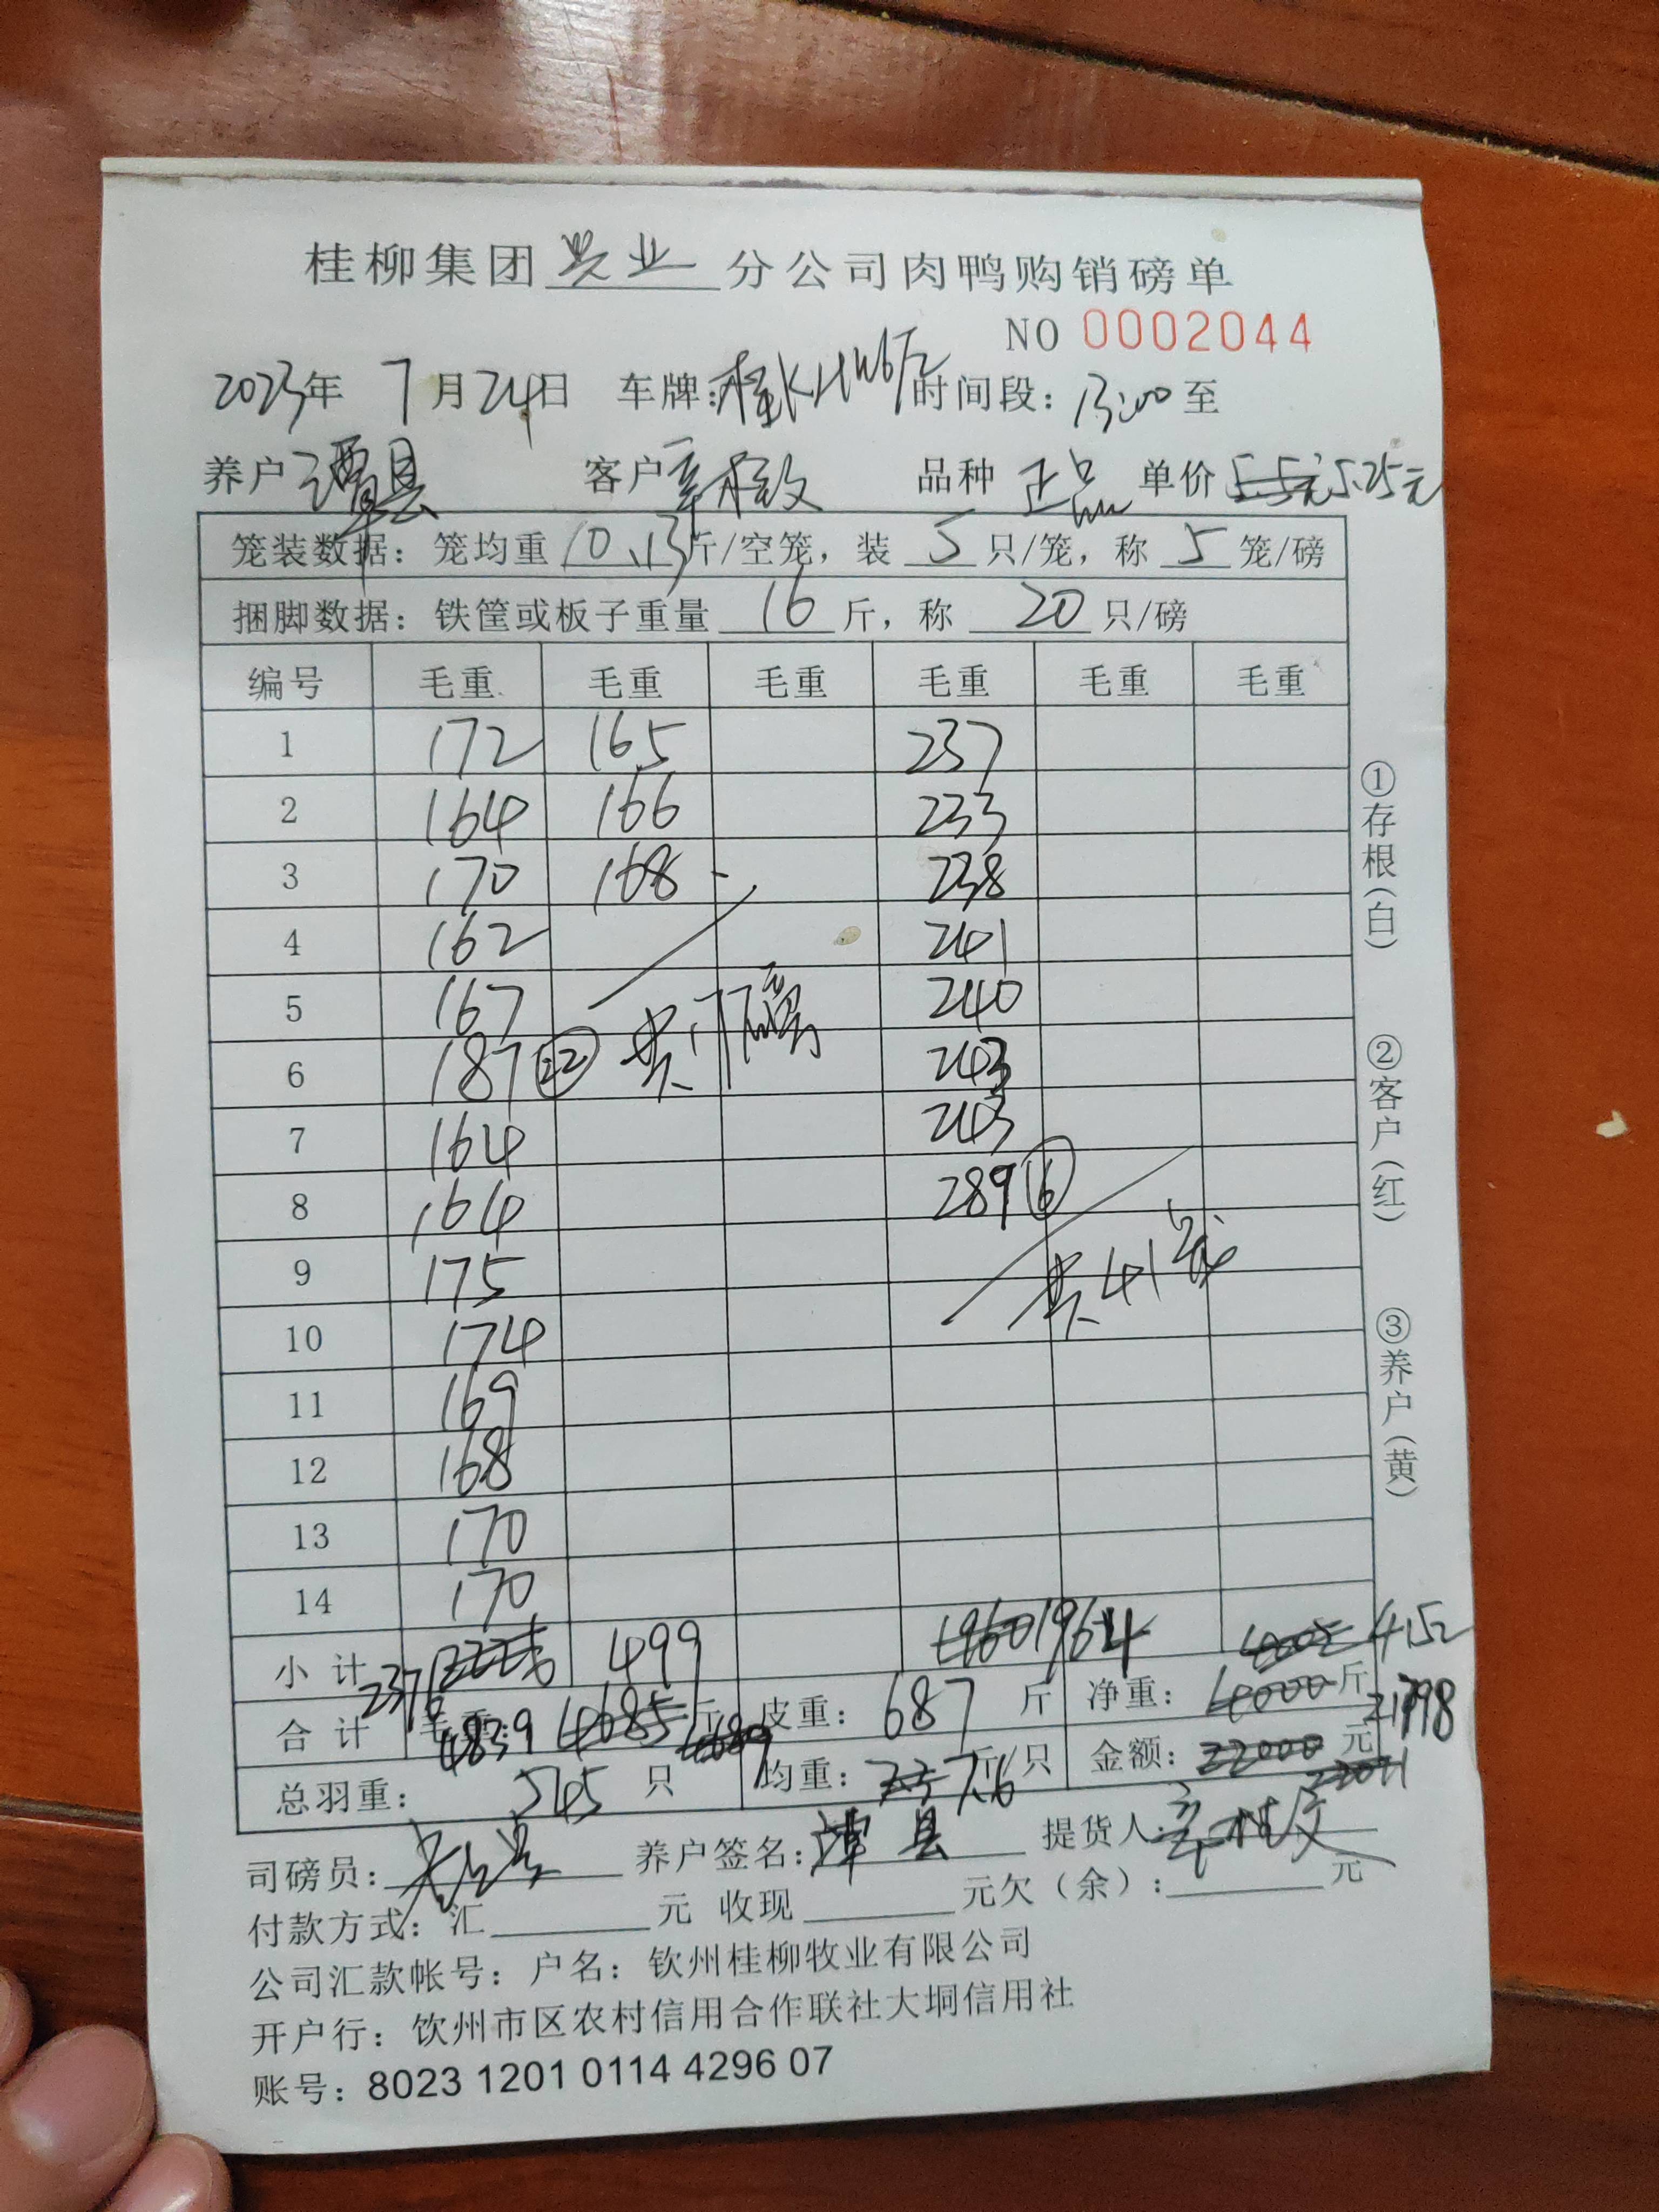 桂柳集团 兴业 分公司肉鸭购销磅单
NO 0002044
2023年 7月24日 车牌: 时间段: 13:00 至
养户 谭县 客户 品种 正品 单价 5.5元 5.25元
笼装数据: 笼均重 10.13 斤/空笼, 装 5 只/笼, 称 5 笼/磅
捆脚数据: 铁筐或板子重量 16 斤, 称 20 只/磅
编号 毛重 毛重 毛重 毛重 毛重 毛重
1 172 165 237
2 164 166 233
3 170 168 238
4 162 241
5 167 240
6 187 22 共17磅 243
7 164 243
8 164 289 6
9 175 共41笼
10 174
11 169
12 168
13 170
14 170
小计 2376 499 1960 1964 4152
合计 毛重: 4839 4685 斤 皮重: 687 斤 净重: 4000 斤 21798
总羽重: 545 只 均重: 7.6 斤/只 金额: 22000 元
司磅员: 养户签名: 谭县 提货人:
付款方式: 汇 元 收现 元欠(余): 元
公司汇款帐号: 户名: 钦州桂柳牧业有限公司
开户行: 钦州市区农村信用合作联社大垌信用社
账号: 8023 1201 0114 4296 07
①存根(白)
②客户(红)
③养户(黄)